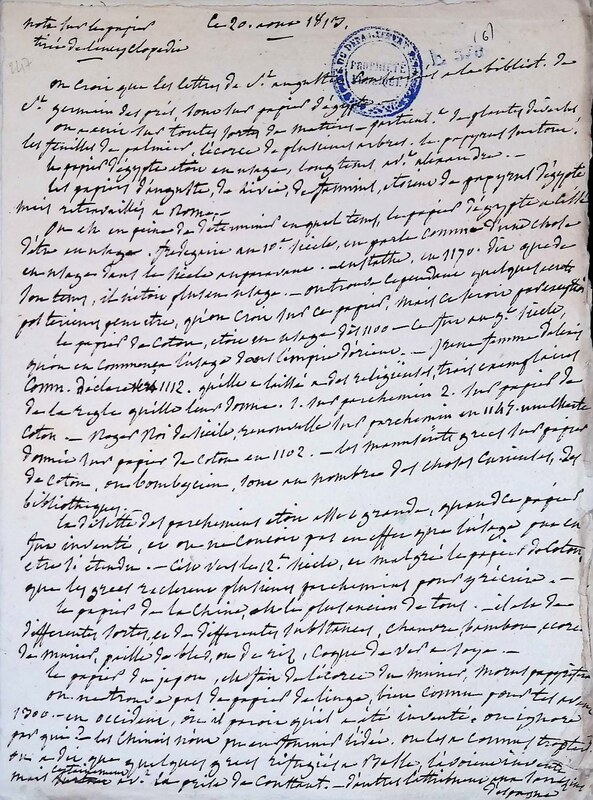 note sur le papier
tirée de l'encyclopédie
Le 20. aout 1813.
(6)
247
PROPRIÉTÉ PUBLIQUE
on croit que les lettres de St. augustin, conservées a la biblioth. de
St. germain des prés, sont sur papier d'égypte.
on a écrit sur toutes sortes de matieres - particult. de plantes diverses
les feuilles de palmier, l'écorce de plusieurs arbres. le papyrus surtout.
le papier d'égypte etoit en usage, longtems avt. alexandre. -
les papiers d'auguste, de livie, de fannius, etoient de papyrus d'égypte
mais retravaillés a Rome.
On est en peine de déterminer en quel tems, le papier d'égypte a cessé
d'être en usage. au siècle, en parle comme d'une chose
en usage dans le siècle auparavant. - eustathe, en 1170. dit que de
son tems, il n'étoit plus en usage. - on trouve cependant quelques
posterieurs peut etre, qu'on croit sur ce papier, mais ce seroit par exception
le papier de Coton, etoit en usage dès 1100 - ce fut au 9e. siècle,
qu'on en commença l'usage dans l'empire d'orient. - Irene femme d'alexis
Comn. déclare 1112. qu'elle a laissé a des religieuses, trois exemplaires
de la regle qu'elle leur donne. 1. sur parchemin 2. sur papier de
Coton. - Roger Roi de Sicile, renouvelle sur parchemin en 1145. une charte
donnée sur papier de Coton en 1102. - les manuscrits grecs sur papier
de Coton, ou bombycien, sont au nombre des choses curieuses, des
bibliotheques.
la disette des parchemins etoit assez grande, quand ce papier
fut inventé, et on ne conçoit pas en effet que l'usage put en
etre si étendu. - C'est vers le 12e. siècle, et malgré le papier de Coton,
que les grecs raclerent plusieurs parchemins pour y récrire. -
le papier de la Chine, est le plus ancien de tous. - il est de
differentes sortes, et de differentes substances, chanvre, bambou, écorce
de murier, paille de bled, ou de riz, Coque de vers a soye. -
le papier du japon, est fait de l'écorce du murier, morus papyrifera
on ne trouve pas de papier de linge, bien connu pour tel avant
1300. en occident, où il paroit qu'il a été inventé. on ignore
par qui? les Chinois n'ont pu en fournir l'idée. on les a connus trop tard.
on a dit que quelques grecs réfugiés a Basle, l'avoient inventé
mais certainement avt. la prise de Constant. - d'autres l'attribuent aux
d'espagne